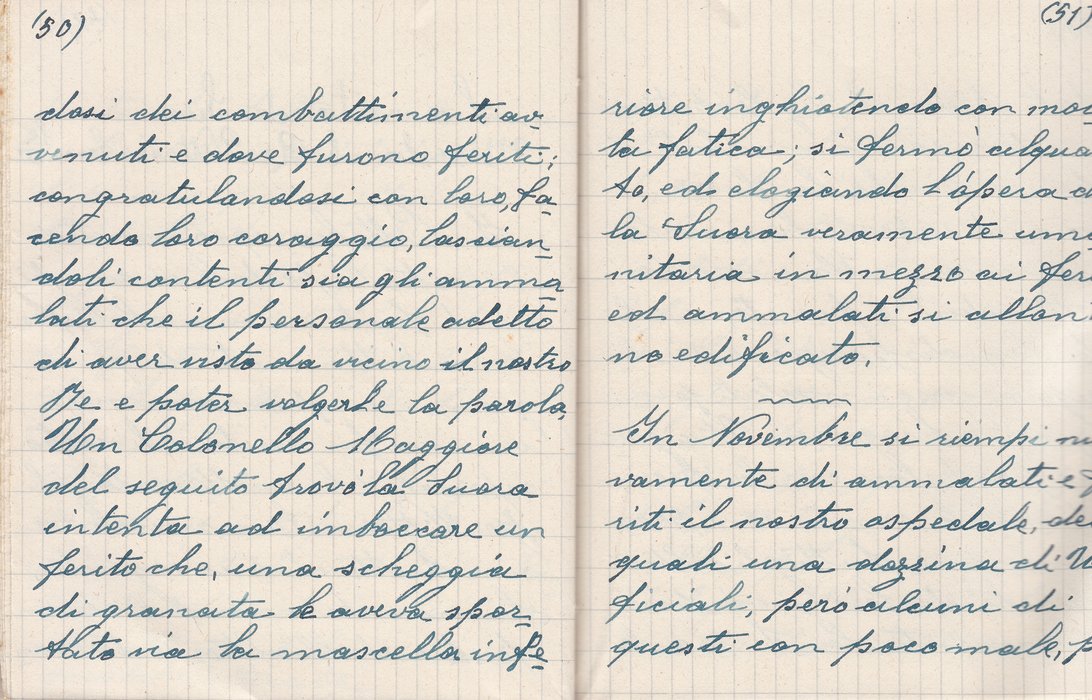 (50)
dosi dei combattimenti av-
venuti e dove furono feriti;
congratulandosi con loro, fa-
cendo loro coraggio, lascian-
doli contenti sia gli amma-
lati che il personale adetto
di aver visto da vicino il nostro
Re e poter volgerle la parola.
Un Colonello Maggiore
del seguito trovò la Suora
intenta ad imboccare un
ferito che, una scheggia
di granata le aveva spor-
tato via la mascella infe-
(51)
riore inghiotendo con mo-
ta fatica; si fermò alqua
to, ed elogiando l'òpera
la Suora veramente uma
nitaria in mezzo ai fer
ed ammalati si allon
no edificato.
In Novembre si riempi nu
vamente di ammalati e
riti il nostro ospedale, de
quali una dozzina di U
ficiali, però alcuni di
questi con poco male, p